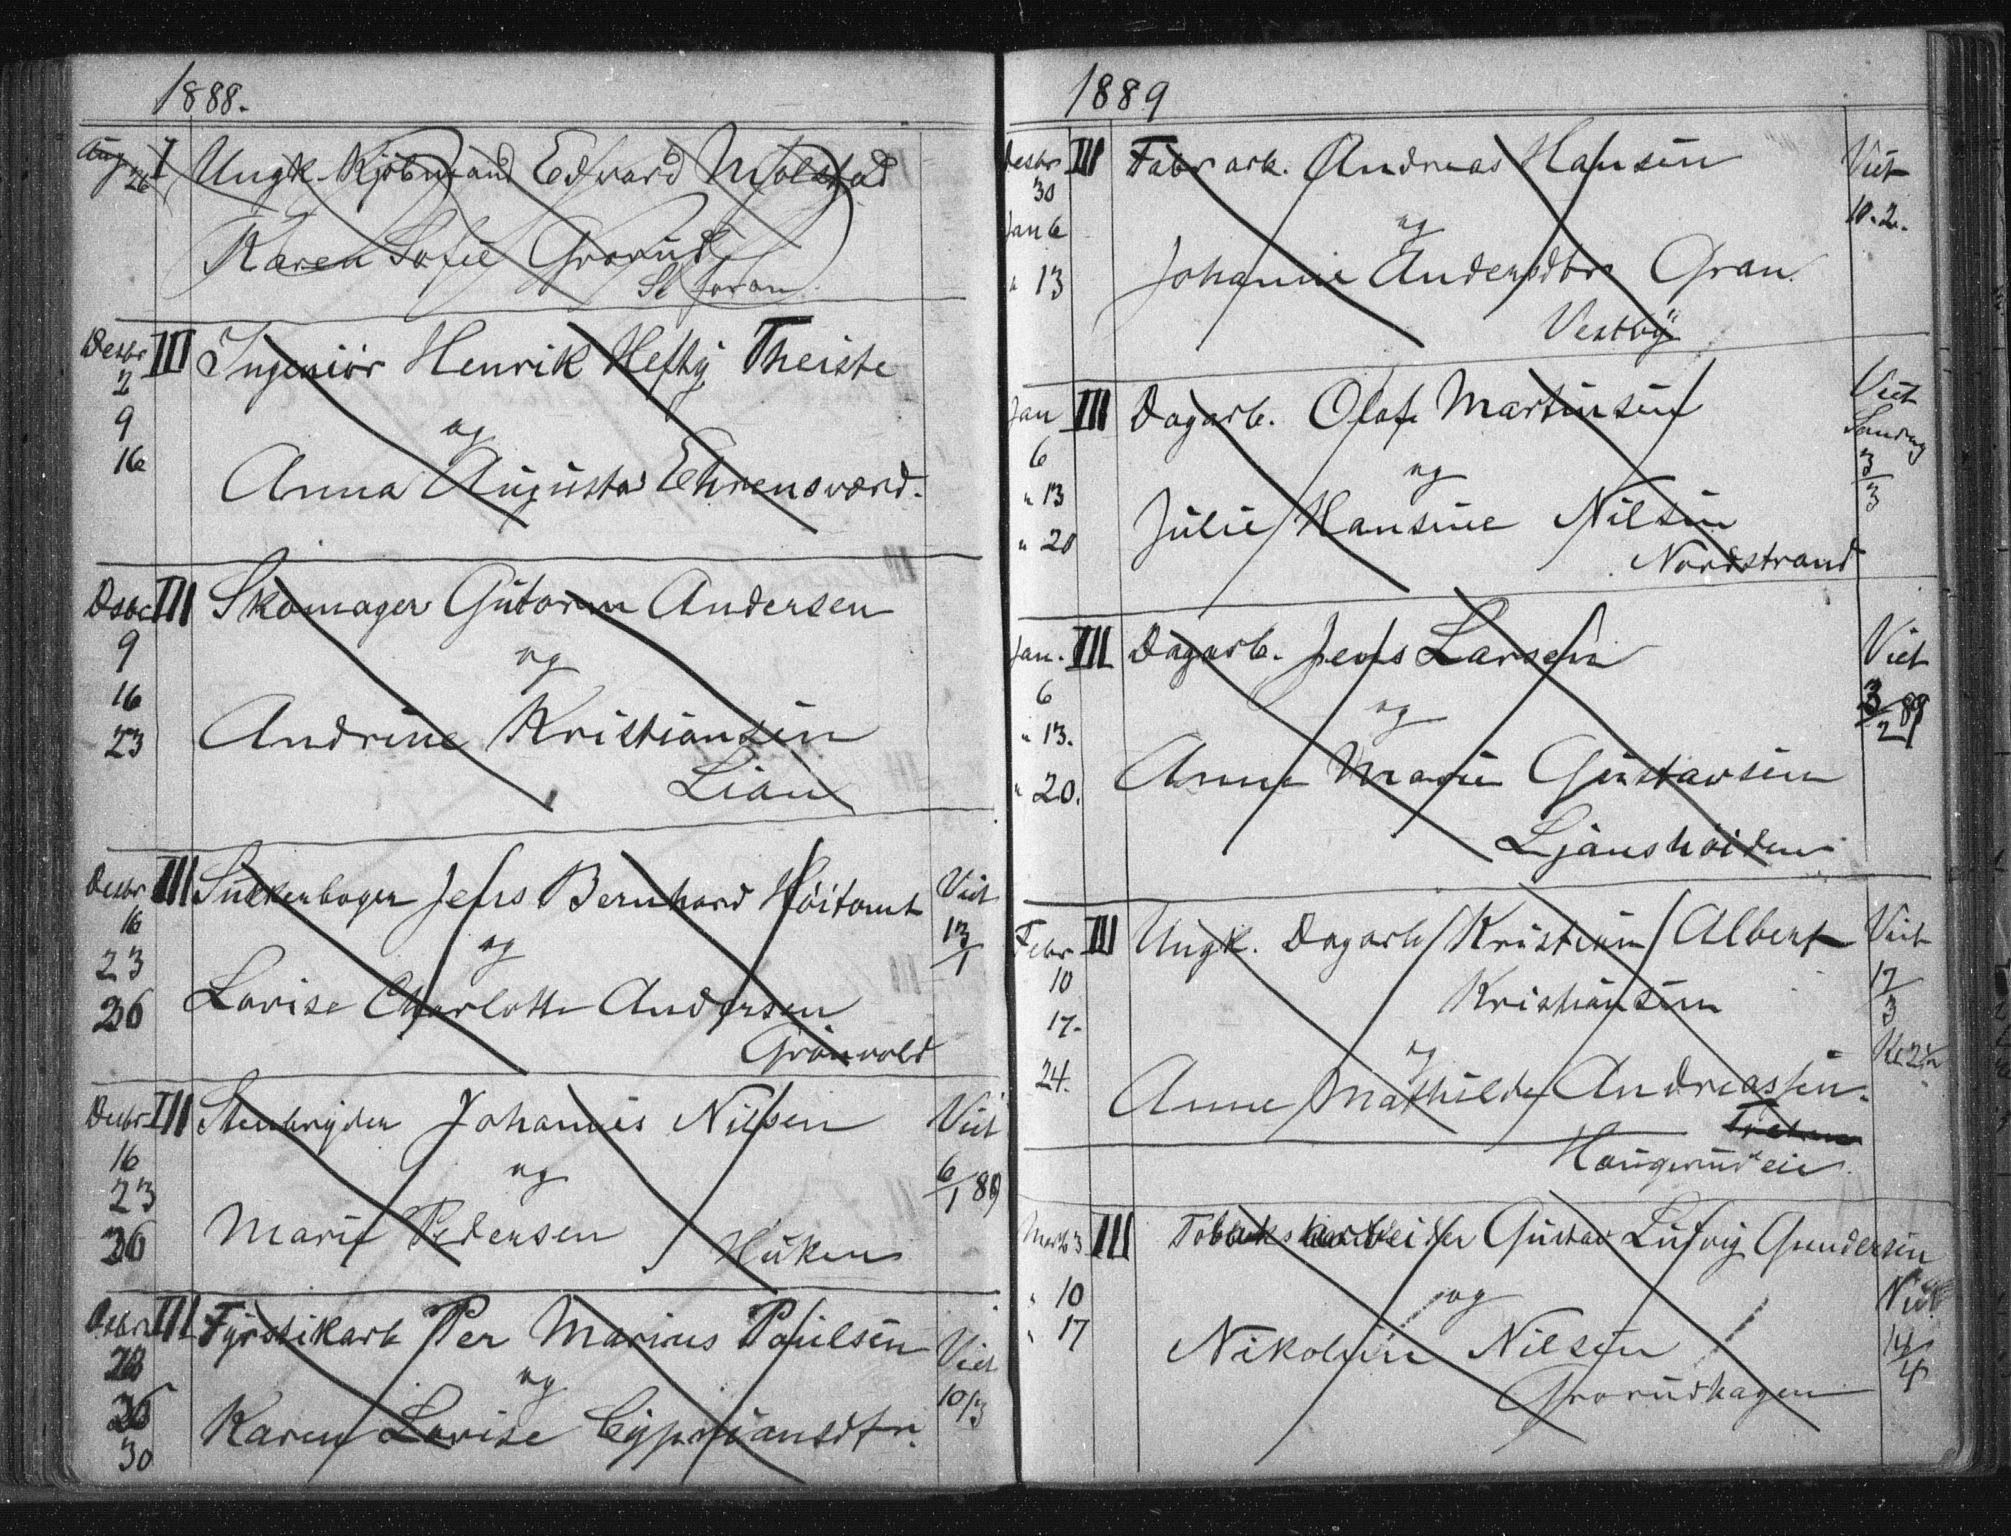 1888.
Aug 26 I Ungk. Kjöbmand Edvard Molstad
Karen Sofie Grorud
Se foran
Desbr III Ingeniör Henrik Heftÿ Theiste
2
9 og
16 Anna Augusta Ehrensværd.
Desbr III Skomager Gutorm Andersen
9 og
16
23 Andrine Kristiansen
Lian
Desbr III Sukkerbager Jens Bernhard Höitomt Viet
16 og 13/1
23
26 Lovise Charlotte Andersen
Grönvold
Desbr III Stenbryder Johannes Nilsen Viet
16 og 6/1 89
23
26 Marie Pedersen Huken
Desbr III Fyrstikarb Per Marius Paulsen Viet
23 og 10/3
26 Karen Lovise Cypriansdtr.
30
1889
Desbr III Fabrark. Andreas Hansen Viet
30 10.2.
Jan 6 og
" 13 Johanne Andersdtr Gran.
Vestby
Jan III Dagarb. Olaf Martinsen Viet
6 og 3/3
" 13 Julie Hansine Nilsen
" 20 Nordstrand
Jan. III Dagarb. Jens Larsen Viet
6 og 3/2 89
" 13.
" 20. Anne Marie Gustavsen
Ljanshöiden
Febr III Ungk. Dagarb Kristian Albert Viet
10 Kristiansen 17/3
17. og
24. Anne Mathilde Andreassen.
Haugerud eie
Marts 3 III Tobaksarbeider Gustav Ludvig Gundersen
" 10 og Viet
" 17 Nikoline Nilsen 14/4
Grorudhagen